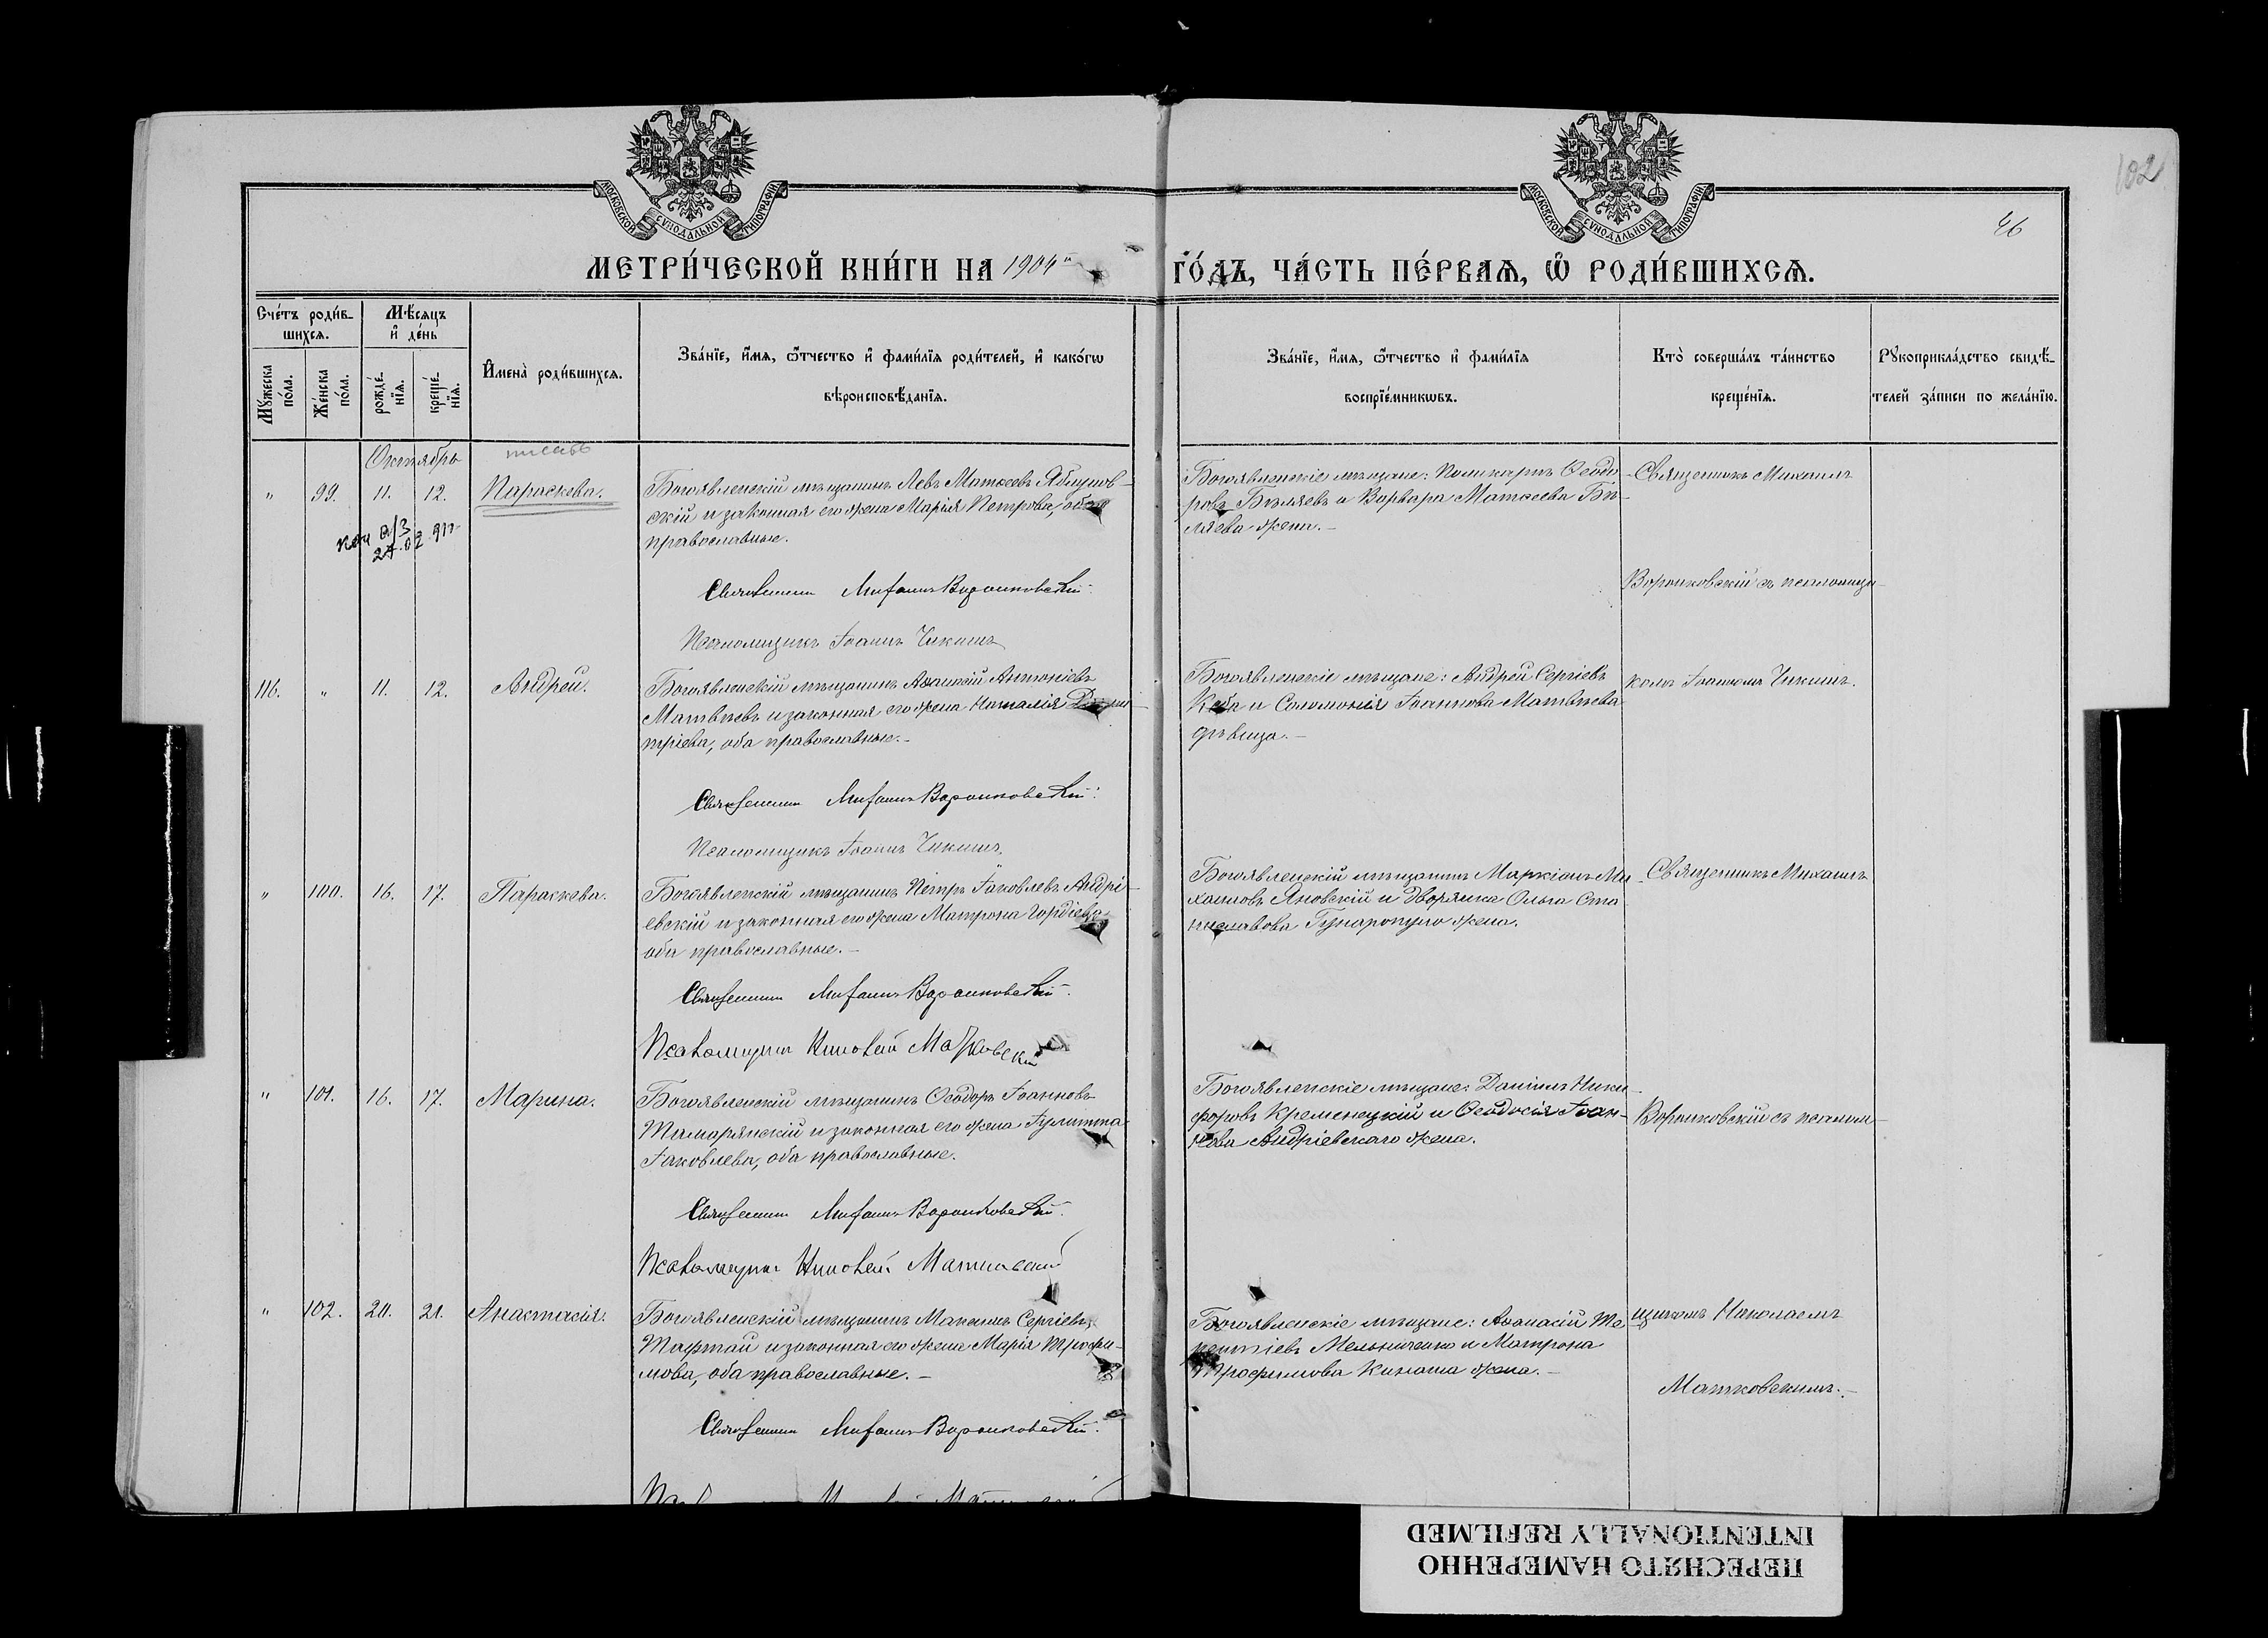 102
46
МОСКОВСКОЙ СѴНОДАЛЬНОЙ ТИПОГРАФІИ
МОСКОВСКОЙ СѴНОДАЛЬНОЙ ТИПОГРАФІИ
МЕТРИ́ЧЕСКОЙ КНИ́ГИ НА 1904
ГО́ДЪ, ЧА́СТЬ ПЕ́РВАѦ, Ѽ РОДИ́ВШИХСѦ.
Сче́тъ роди́в-
шихсѧ.
Мѣ́сѧцъ
и҆ де́нь
Мꙋжеска по́ла.
Же́нска по́ла.
рожде́-
нїѧ.
креще́-
нїѧ.
И҆мена̀ роди́вшихсѧ.
Зва́нїе, и҆́мѧ, ѻ҆́тчество и҆ фами́лїѧ роди́телей, и҆ како́гѡ
вѣроисповѣ́данїѧ.
Зва́нїе, и҆́мѧ, ѻ҆́тчество и҆ фами́лїѧ
воспрїе́мникѡвъ.
Кто̀ соверша́лъ та́инство
креще́нїѧ.
Рꙋкоприкла́дство свидѣ́-
телей за́писи по жела́нїю.
Октябрь
" 99. 11. 12. Параскева.
Богоявленскій мѣщанинъ Левъ Матѳеевъ Яблунов-
скій и законная его жена Марія Петрова, оба
православные.
Священникъ Михаилъ Воронковскій
Псаломщикъ Іоаннъ Чикинъ
Богоявленскіе мѣщане: Поликарпъ Ѳеодо-
ровъ Бѣляевъ и Варвара Матѳеева Бѣ-
ляева жена.-
Священникъ Михаилъ
Воронковскій съ псаломщи-
116. " 11. 12. Андрей.
Богоявленскій мѣщанинъ Антоніевъ
Матвѣевъ и законная его жена Наталія Дими-
тріева, оба православные.-
Священникъ Михаилъ Воронковскій.
Псаломщикъ Іоаннъ Чикинъ.
Богоявленскіе мѣщане: Андрей Сергіевъ
и Соломонія Іоаннова Матвѣева
дѣвица.-
комъ Іоанномъ Чикинъ.
" 100. 16. 17. Параскева.
Богоявленскій мѣщанинъ Петръ Іаковлевъ Андрі-
евскій и законная его жена Матрона Гордіева
оба православные.-
Священникъ Михаилъ Воронковскій.
Псаломщикъ Николай Матковскій
Богоявленскій мѣщанинъ Маркіанъ Ми-
хаиловъ Яновскій и дворянка Ольга Ста-
ниславова жена.
Священникъ Михаилъ
" 101. 16. 17. Марина.
Богоявленскій мѣщанинъ Ѳеодоръ Іоанновъ
Тамарянскій и законная его жена Іулитта
Іаковлева, оба православные.
Священникъ Михаилъ Воронковскій.
Псаломщикъ Николай Матковскій
Богоявленскіе мѣщане: Даніилъ Ники-
форовъ Кременецкій и Ѳеодосія Іоан-
нова Андріевскаго жена.
Воронковскій съ псалом-
" 102. 20. 21. Анастасія.
Богоявленскій мѣщанинъ Максимъ Сергіевъ
Тафтай и законная его жена Марія Трофи-
мова, оба православные.-
Священникъ Михаилъ Воронковскій.
Богоявленскіе мѣщане: Аѳанасій Те-
рентіевъ Мельниченко и Матрона
Трофимова жена.-
щикомъ Николаемъ
Матковскимъ.-
ПЕРЕСНЯТО НАМЕРЕННО
INTENTIONALLY REFILMED